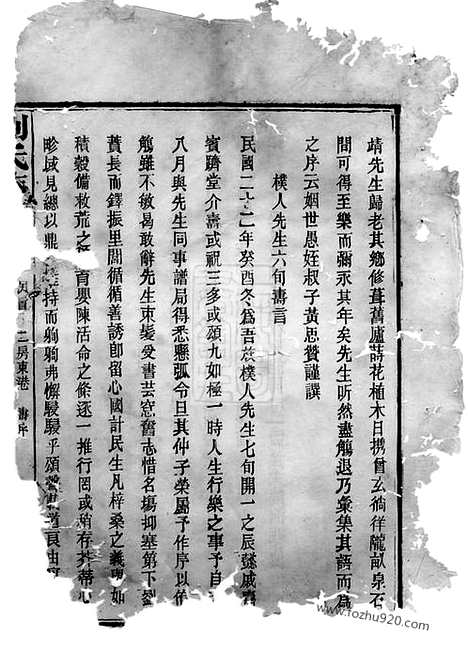 靖先生歸老其鄉修葺舊廬蒔花植木日攜曾玄徜徉隴畝泉石
間可得至樂而彌永其年矣先生听然盡觴退乃彙集其語而為
之序云姻世愚姪叔子黃思贊謹譔
樸人先生六旬壽言
民國二十二年癸酉冬為吾族樸人先生七旬開一之辰懿戚
賓躋堂介壽或祝三多或頌九如極一時人生行樂之事予自
八月與先生同事譜局得悉懸弧令旦其仲子榮屬予作序以侑
觴雖不敏曷敢辭先生束髮受書芸窓奮志惜名場抑塞第下劉
蕡長而鐸振里閭循循善誘卽留心國計民生凡梓桑之義
如
積穀備救荒之
育嬰陳活命之條逐一推行罔或稍存芥蒂心
畛域見總以鼎
持而躬躬弗懈駸駸乎頌
二房東港
www.fozhu920.com